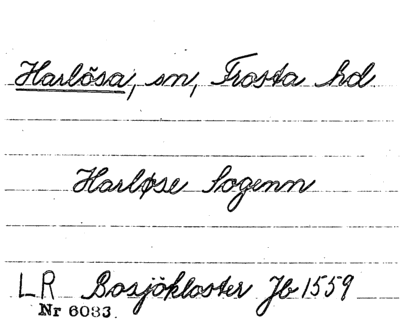 Harlösa, sn, Frosta hd
Harløse Sogenn
LR Bosjökloster Jb 1559
Nr 6033.